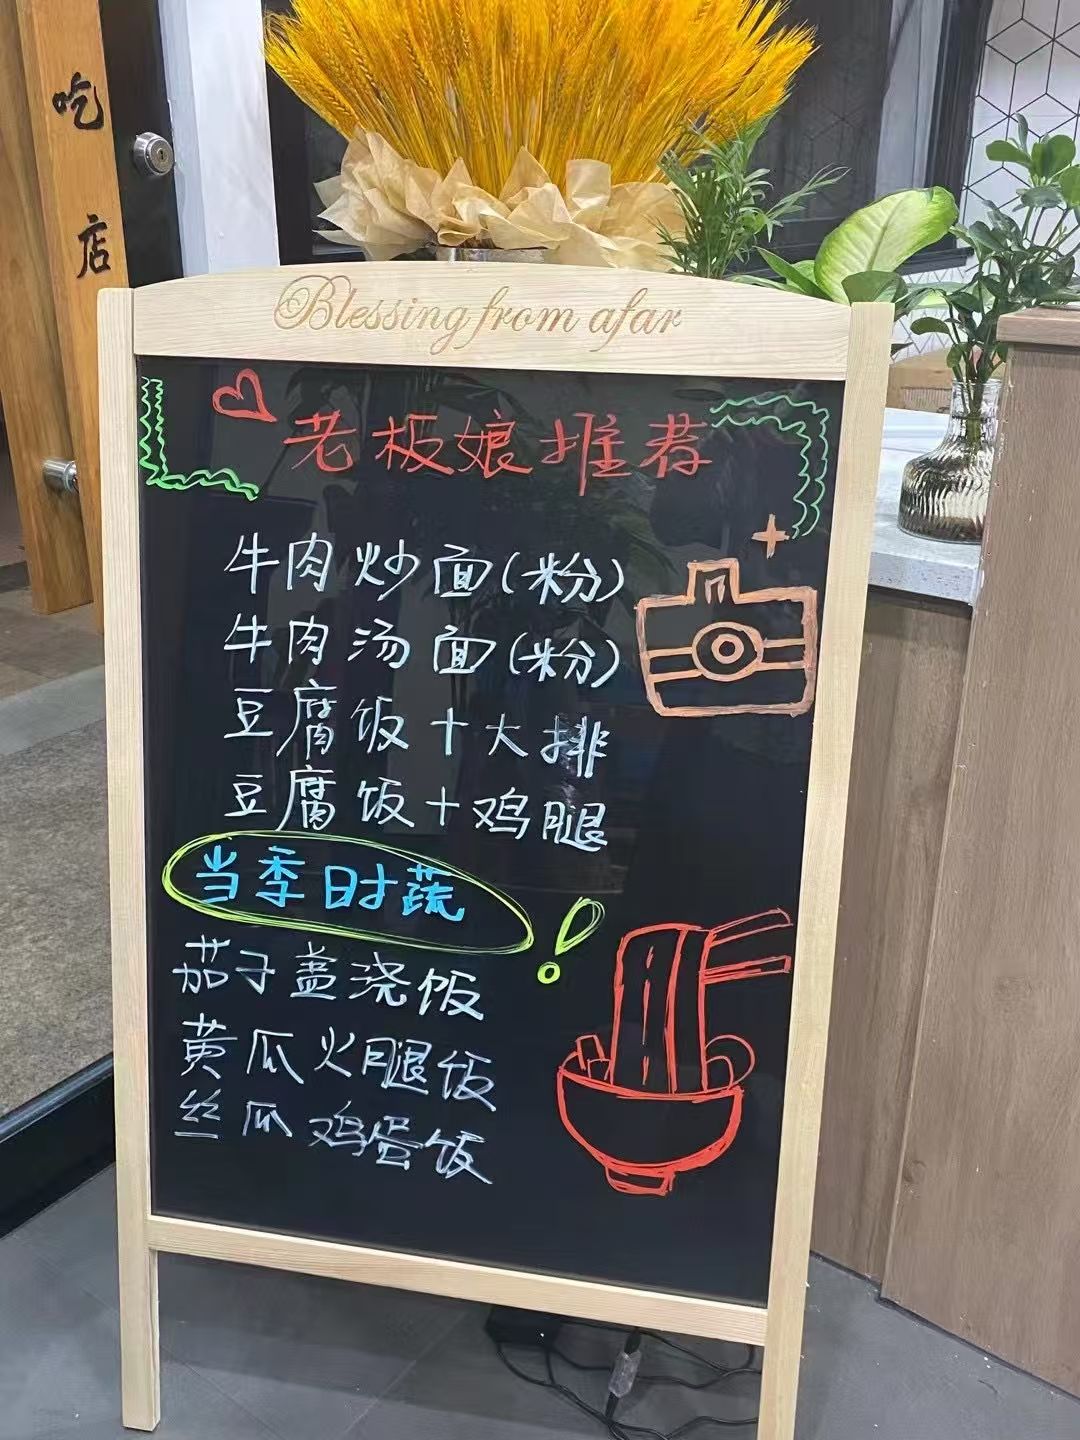 吃店
Blessing from afar
老板娘推荐
牛肉炒面(粉)
牛肉汤面(粉)
豆腐饭+大排
豆腐饭+鸡腿
当季时蔬!
茄子盖浇饭
黄瓜火腿饭
丝瓜鸡蛋饭